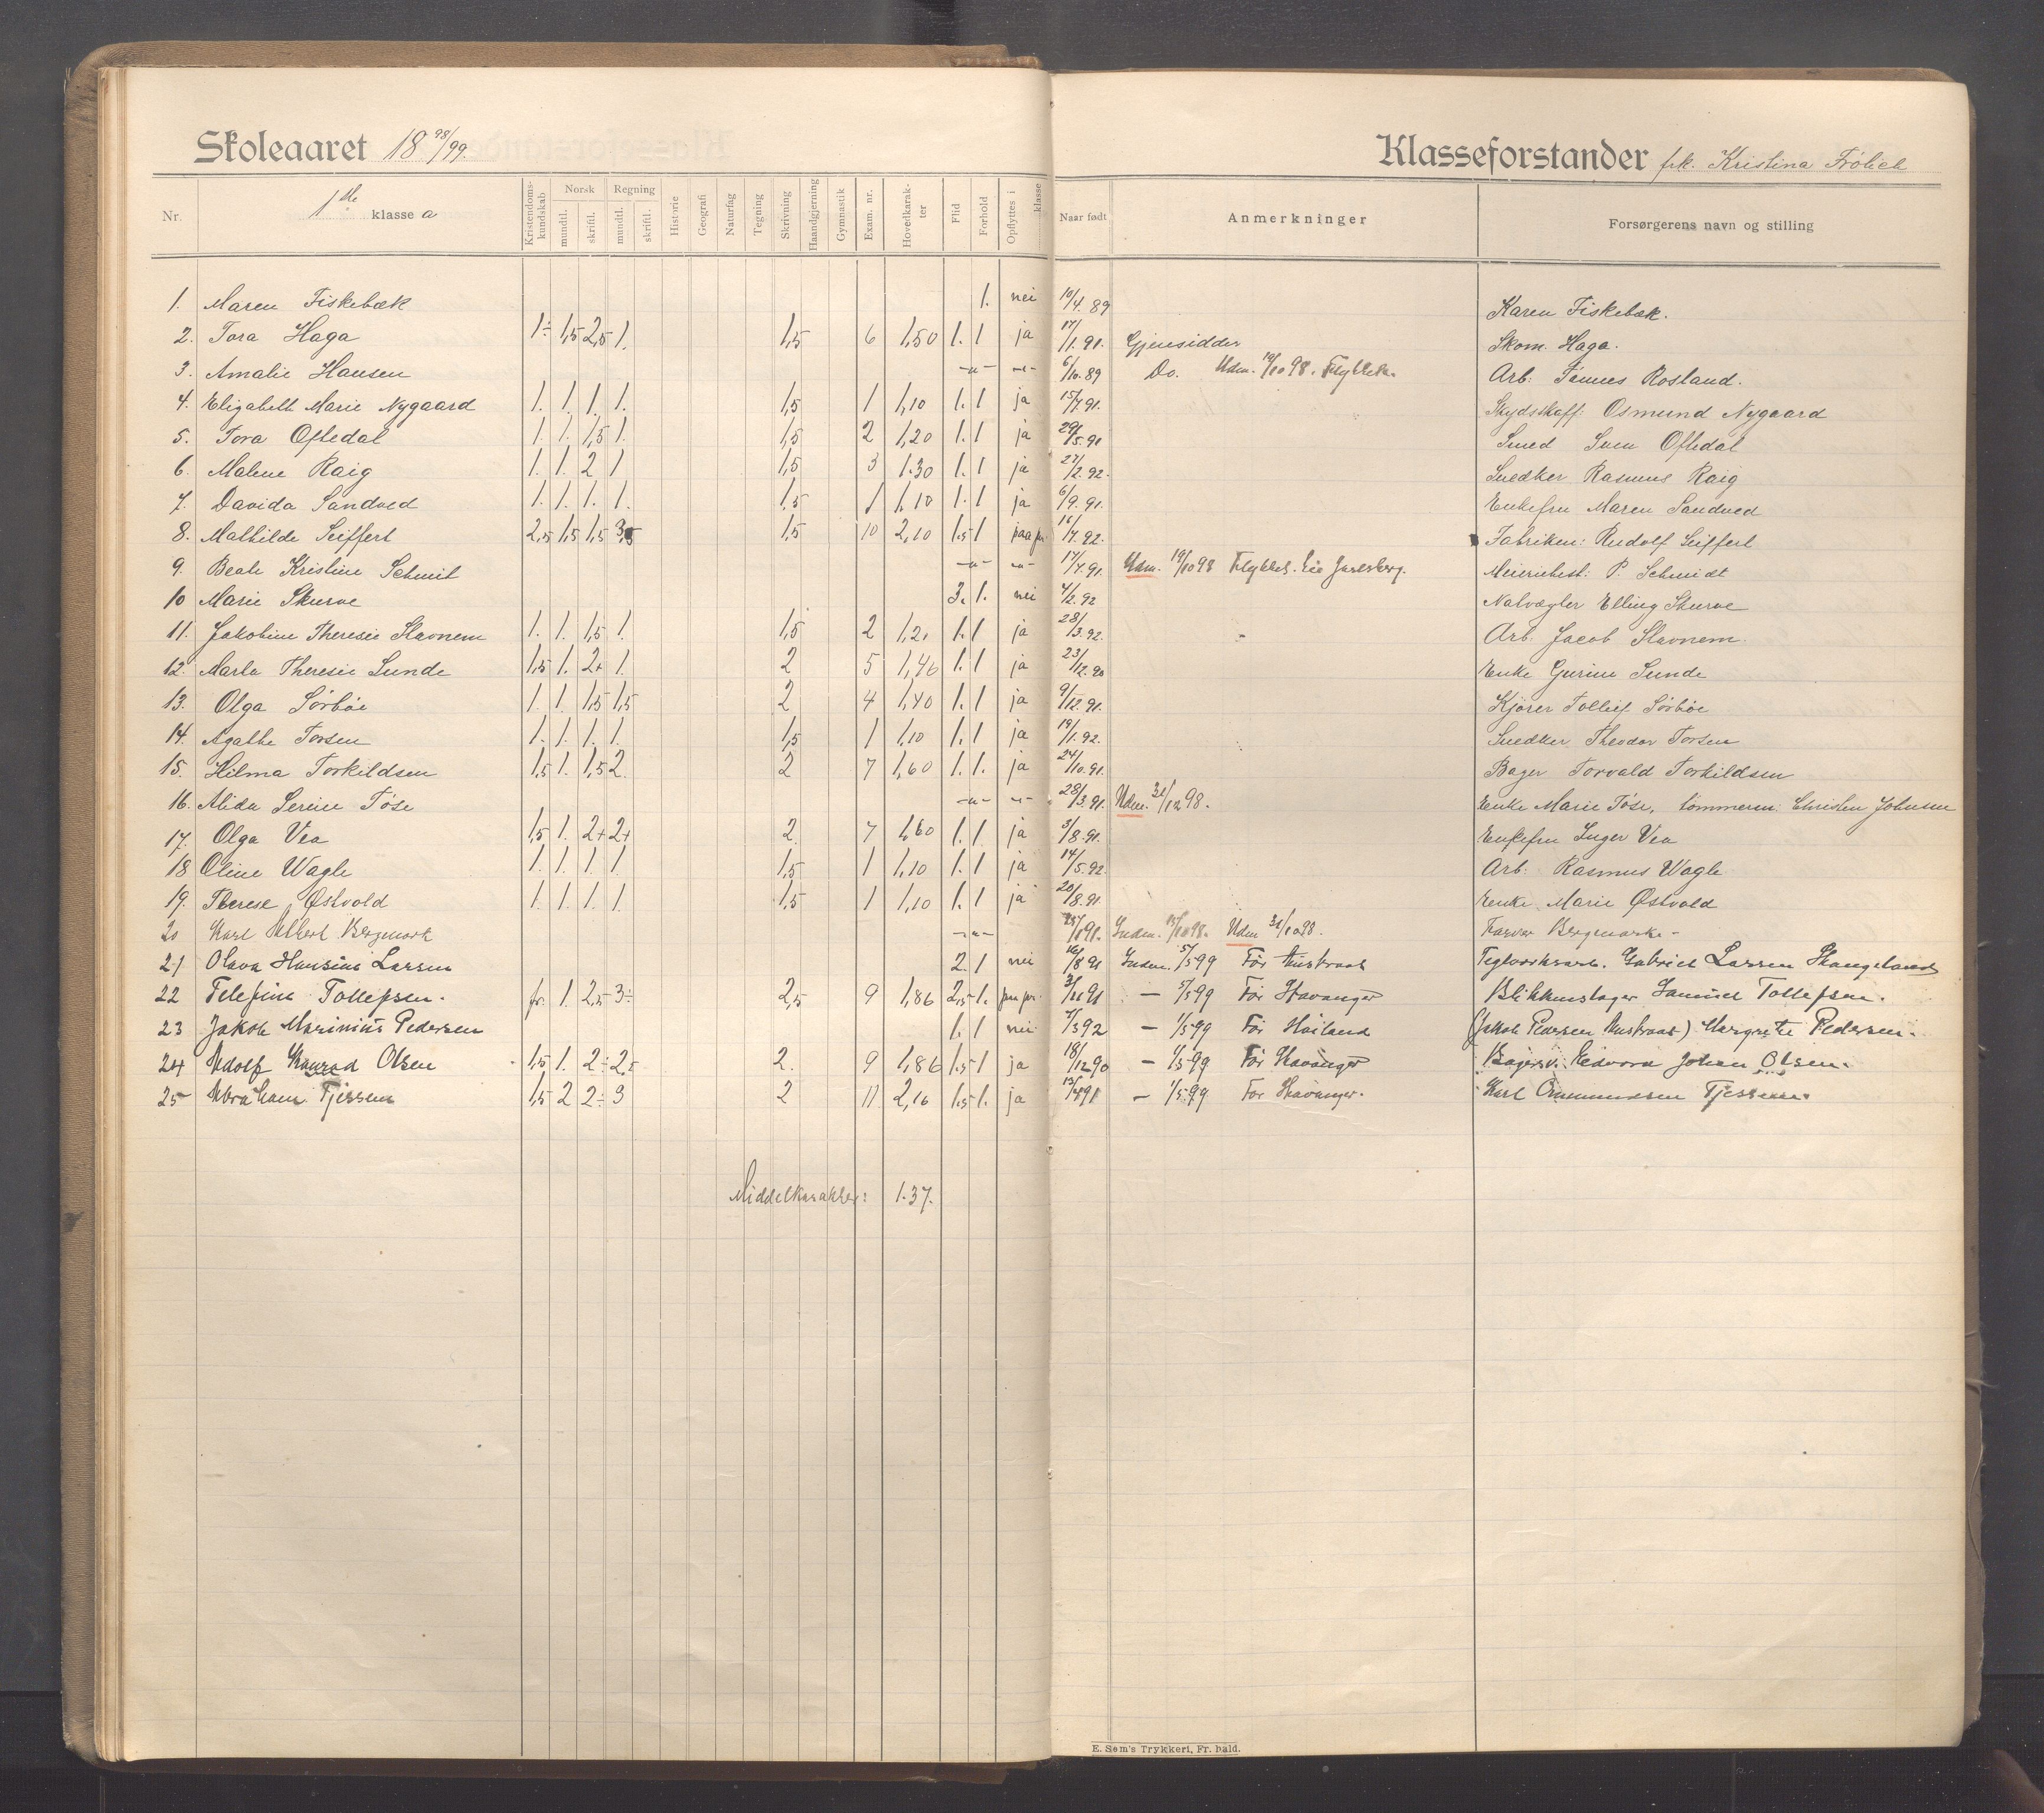 Skoleaaret 18 98/99. Klasseforstander frk. Kristina Frölich
Nr. 1ste klasse a Kristendomskundskab Norsk mundtl. skriftl. Regning mundtl. skriftl. Historie Geografi Naturfag Tegning Skrivning Haandgjerning Gymnastik Exam. nr. Hovedkarakter Flid Forhold Opflyttes i klasse Naar født Anmerkninger Forsørgerens navn og stilling
1. Maren Fiskebæk 1. nei 10/4.89 Karen Fiskebæk.
2. Tora Haga 1÷ 1,5 2,5 1. 1,5 6 1,50 1. 1 ja 17/1.91. Gjensidder Skom. Haga.
3. Amalie Hansen -"- -"- 6/10.89 Do. Udm. 19/10 98. Flyttet. Arb. Tønnes Rosland.
4. Elisabeth Marie Nygaard 1. 1. 1. 1. 1,5 1 1,10 1. 1 ja 15/7.91. Skydsskaff: Osmund Nygaard
5. Tora Oftedal 1. 1. 1,5 1. 1,5 2 1,20 1. 1 ja 29/5.91 Smed Sven Oftedal
6. Malene Raig 1. 1. 2 1 1,5 3 1.30 1. 1 ja 27/2.92. Snedker Rasmus Raig
7. Davida Sandved 1. 1. 1. 1. 1,5 1 1,10 1. 1 ja 6/9.91. Enkefru Maren Sandved
8. Mathilde Seiffert 2,5 1,5 1,5 3,5 1,5 10 2,10 1,5 1 paa pr. 16/7.92. Fabriken: Rudolf Seiffert
9. Beate Kristine Schmit -"- -"- 17/7.91. Udm. 19/10 98 Flyttet. Eie Jarlsberg. Meieribest: P. Schmidt
10 Marie Skurve 3. 1. nei 4/2.92 Natvægter Elling Skurve
11. Jakobine Theresie Stavnem 1. 1. 1,5 1. 1,5 2 1,21 1. 1 ja 28/3.92. Arb. Jacob Stavnem.
12. Marta Theresie Sunde 1,5 1. 2+ 1. 2 5 1,46 1. 1 ja 23/12.90 Enke Gurine Sunde
13. Olga Sörböe 1. 1. 1,5 1,5 2 4 1,40 1. 1 ja 9/12.91. Kjører Tollief Sörböe
14. Agathe Torsen 1. 1. 1. 1. 1,5 1 1,10 1. 1 ja 19/1.92. Snedker Theodor Torsen
15. Hilma Torkildsen 1,5 1. 1,5 2. 2 7 1,60 1. 1. ja 24/10.91. Bager Torvald Torkildsen
16. Alida Serine Töse -"- -"- 28/3.91. Udm. 31/12 98. Enke Marie Töse, tømmerm: Christen Johnsen
17. Olga Vea 1,5 1. 2+ 2+ 2. 7 1,60 1. 1 ja 3/8.91. Enkefru Inger Vea
18 Oline Wagle 1. 1. 1. 1. 1,5 1 1,10 1. 1 ja 14/5.92. Arb: Rasmus Wagle
19. Therese Østvold 1. 1. 1. 1. 1,5 1 1,10 1. 1 ja 20/8.91. Enke Marie Østvold
20 Karl Albert Bergmark -"- Indm. 13/10 98. Udm 31/10 98. Farver Bergmark -
21 Olava Hansine Larsen 2. 1 nei 16/8 91 Indm. 5/5 99 Før Austraat Teglværksarb. Gabriel Larsen Skangeland
22 Telefine Tollefsen. fr. 1. 2,5 3÷ 2,5 9 1,86 2,5 1. paa pr. — 5/5 99 Før Stavanger Blikkenslager Samuel Tollefsen.
23 Jakob Marinius Pedersen 1. 1 nei 7/3 92 — 1/5 99 Før Høiland (Jakob Pedersen Austraat) Margrete Pedersen.
24 Adolf Konrad Olsen 1,5 1. 2÷ 2,5 2. 9 1,86 1,5 1 ja 18/12 90 — 1/5 99 Før Stavanger Bagersv. Edvard Johan Olsen.
25 Abraham Tjessem 1,5 2 2÷ 3 2 11 2,16 1,5 1. ja — 1/5 99 Før Stavanger. Karl Ommundsen Tjessem.
Middelkarakter: 1.37.
E. Søm's Trykkeri, Fr. hald.